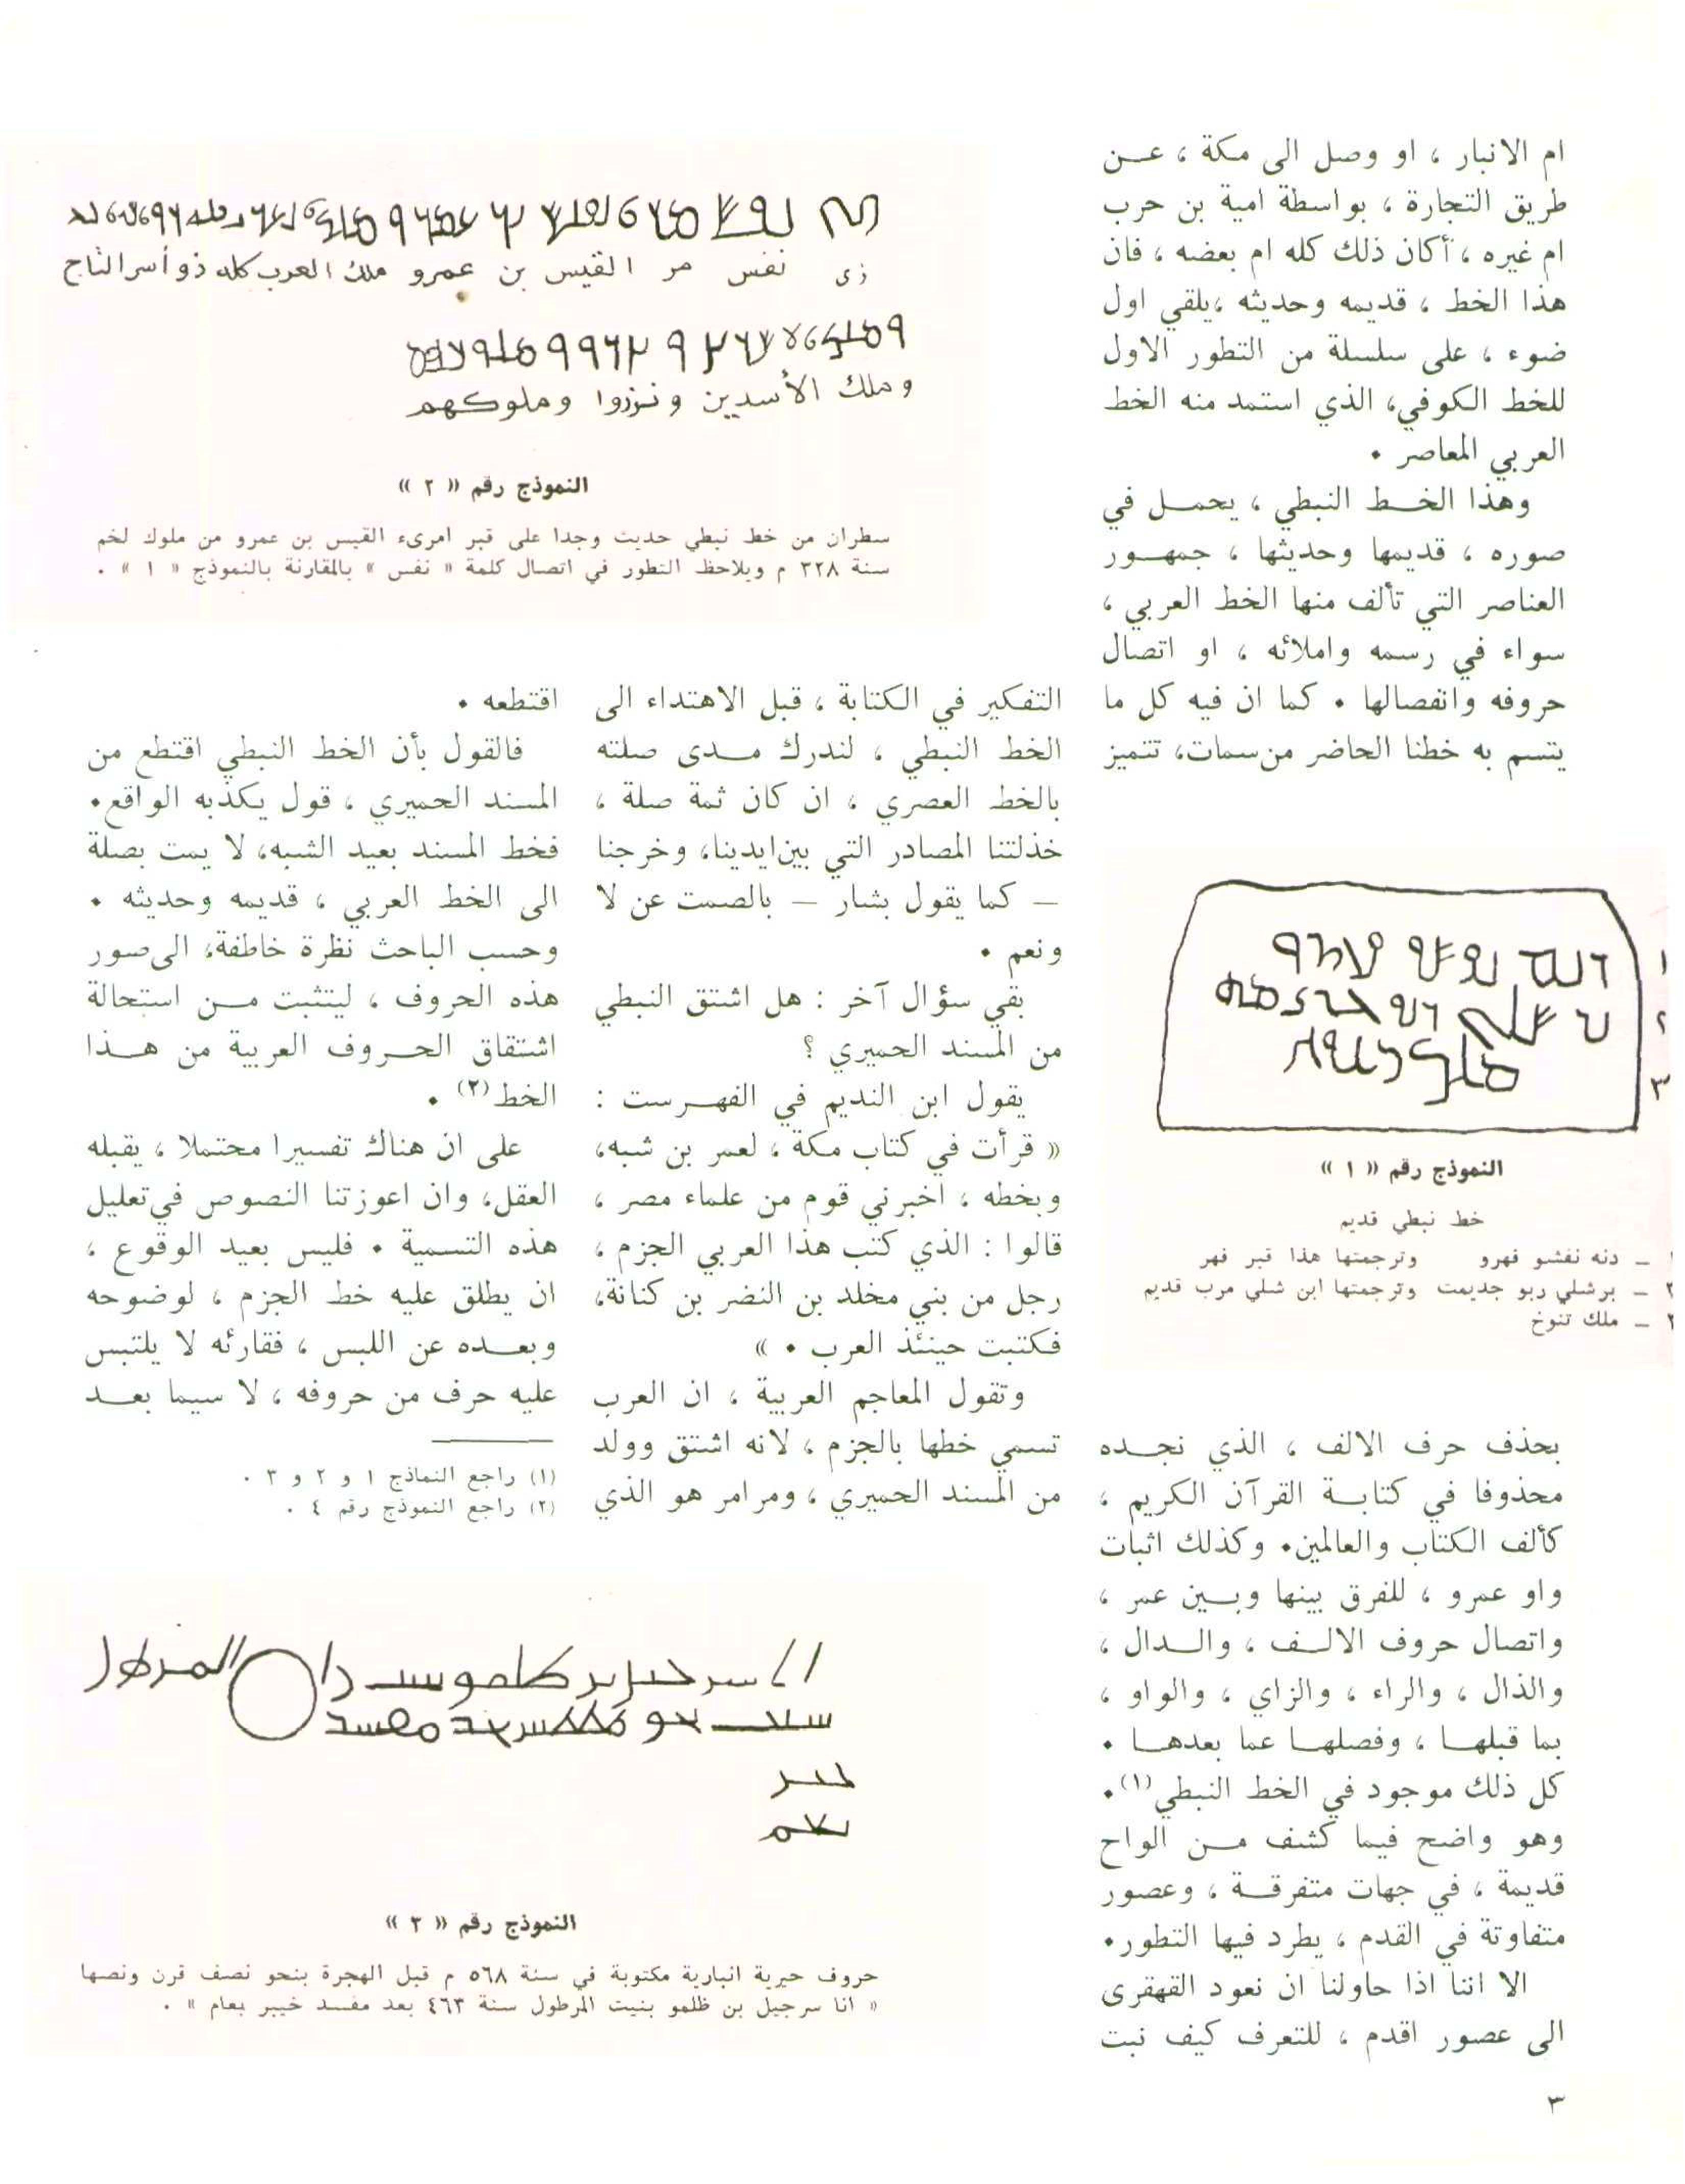 ام الانبار ، او وصل الى مكة ، عن
طريق التجارة ، بواسطة امية بن حرب
ام غيره ، أكان ذلك كله ام بعضه ، فان
هذا الخط ، قديمه وحديثه ، يلقي اول
ضوء ، على سلسلة من التطور الاول
للخط الكوفي، الذي استمد منه الخط
العربي المعاصر .
وهذا الخط النبطي ، يحمل في
صوره ، قديمها وحديثها ، جمهور
العناصر التي تألف منها الخط العربي ،
سواء في رسمه واملائه ، او اتصال
حروفه وانفصالها . كما ان فيه كل ما
يتسم به خطنا الحاضر من سمات، تتميز
النموذج رقم « ١ »
خط نبطي قديم
١ – دنه نفشو فهرو وترجمتها هذا قبر فهر
٢ – برشلي ربو جديمت وترجمتها ابن شلي مرب قديم
٣ – ملك تنوخ
بحذف حرف الالف ، الذي نجده
محذوفا في كتابة القرآن الكريم ،
كألف الكتاب والعالمين. وكذلك اثبات
واو عمرو ، للفرق بينها وبين عمر ،
واتصال حروف الالف ، والدال ،
والذال ، والراء ، والزاي ، والواو ،
بما قبلها ، وفصلها عما بعدها .
كل ذلك موجود في الخط النبطي (١).
وهو واضح فيما كشف من الواح
قديمة ، في جهات متفرقة ، وعصور
متفاوتة في القدم ، يطرد فيها التطور.
الا اننا اذا حاولنا ان نعود القهقرى
الى عصور اقدم ، للتعرف كيف نبت
زى نفس مر القيس بن عمرو ملك العرب كله ذو أسر التاج
وملك الأسدين ونزروا وملوكهم
النموذج رقم « ٢ »
سطران من خط نبطي حديث وجدا على قبر امرىء القيس بن عمرو من ملوك لخم
سنة ٣٢٨ م ويلاحظ التطور في اتصال كلمة « نفس » بالمقارنة بالنموذج « ١ » .
التفكير في الكتابة ، قبل الاهتداء الى
الخط النبطي ، لندرك مدى صلته
بالخط العصري ، ان كان ثمة صلة ،
خذلتنا المصادر التي بين ايدينا، وخرجنا
– كما يقول بشار – بالصمت عن لا
ونعم .
بقي سؤال آخر : هل اشتق النبطي
من المسند الحميري ؟
يقول ابن النديم في الفهرست :
« قرأت في كتاب مكة ، لعمر بن شبه،
وبخطه ، اخبرني قوم من علماء مصر ،
قالوا : الذي كتب هذا العربي الجزم ،
رجل من بني مخلد بن النضر بن كنانة،
فكتبت حينئذ العرب . »
وتقول المعاجم العربية ، ان العرب
تسمي خطها بالجزم ، لانه اشتق وولد
من المسند الحميري ، ومرامر هو الذي
اقتطعه .
فالقول بأن الخط النبطي اقتطع من
المسند الحميري ، قول يكذبه الواقع.
فخط المسند بعيد الشبه، لا يمت بصلة
الى الخط العربي ، قديمه وحديثه .
وحسب الباحث نظرة خاطفة، الى صور
هذه الحروف ، ليتثبت من استحالة
اشتقاق الحروف العربية من هذا
الخط (٢) .
على ان هناك تفسيرا محتملا ، يقبله
العقل، وان اعوزتنا النصوص في تعليل
هذه التسمية . فليس بعيد الوقوع ،
ان يطلق عليه خط الجزم ، لوضوحه
وبعده عن اللبس ، فقارئه لا يلتبس
عليه حرف من حروفه ، لا سيما بعد
(١) راجع النماذج ١ و ٢ و ٣ .
(٢) راجع النموذج رقم ٤ .
النموذج رقم « ٣ »
حروف حيرية انبارية مكتوبة في سنة ٥٦٨ م قبل الهجرة بنحو نصف قرن ونصها
« انا سرجيل بن ظلمو بنيت المرطول سنة ٤٦٣ بعد مفسد خيبر بعام » .
٣